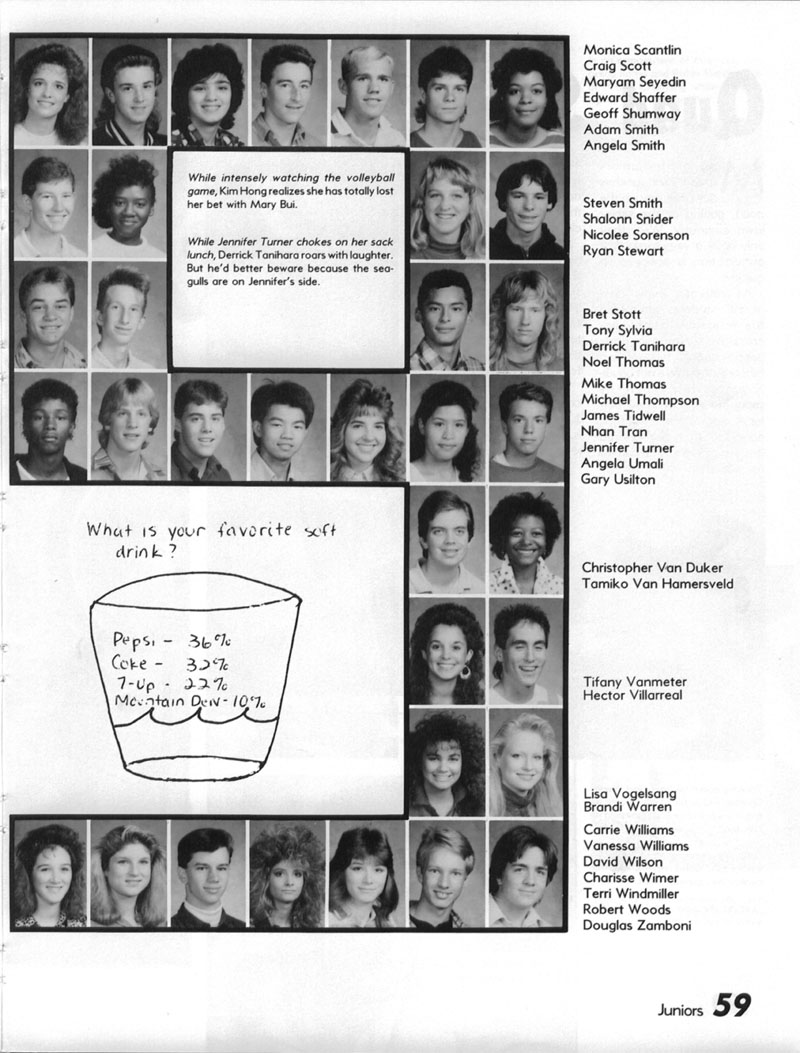 Monica Scantlin
Craig Scott
Maryam Seyedin
Edward Shaffer
Geoff Shumway
Adam Smith
Angela Smith
While intensely watching the volleyball
game, Kim Hong realizes she has totally lost
her bet with Mary Bui.
While Jennifer Turner chokes on her sack
lunch, Derrick Tanihara roars with laughter.
But he'd better beware because the sea-
gulls are on Jennifer's side.
Steven Smith
Shalonn Snider
Nicolee Sorenson
Ryan Stewart
Bret Stott
Tony Sylvia
Derrick Tanihara
Noel Thomas
Mike Thomas
Michael Thompson
James Tidwell
Nhan Tran
Jennifer Turner
Angela Umali
Gary Usilton
What is your favorite soft
drink?
Pepsi - 36%
Coke - 32%
7-Up - 22%
Mountain Dew - 10%
Christopher Van Duker
Tamiko Van Hamersveld
Tifany Vanmeter
Hector Villarreal
Lisa Vogelsang
Brandi Warren
Carrie Williams
Vanessa Williams
David Wilson
Charisse Wimer
Terri Windmiller
Robert Woods
Douglas Zamboni
Juniors 59